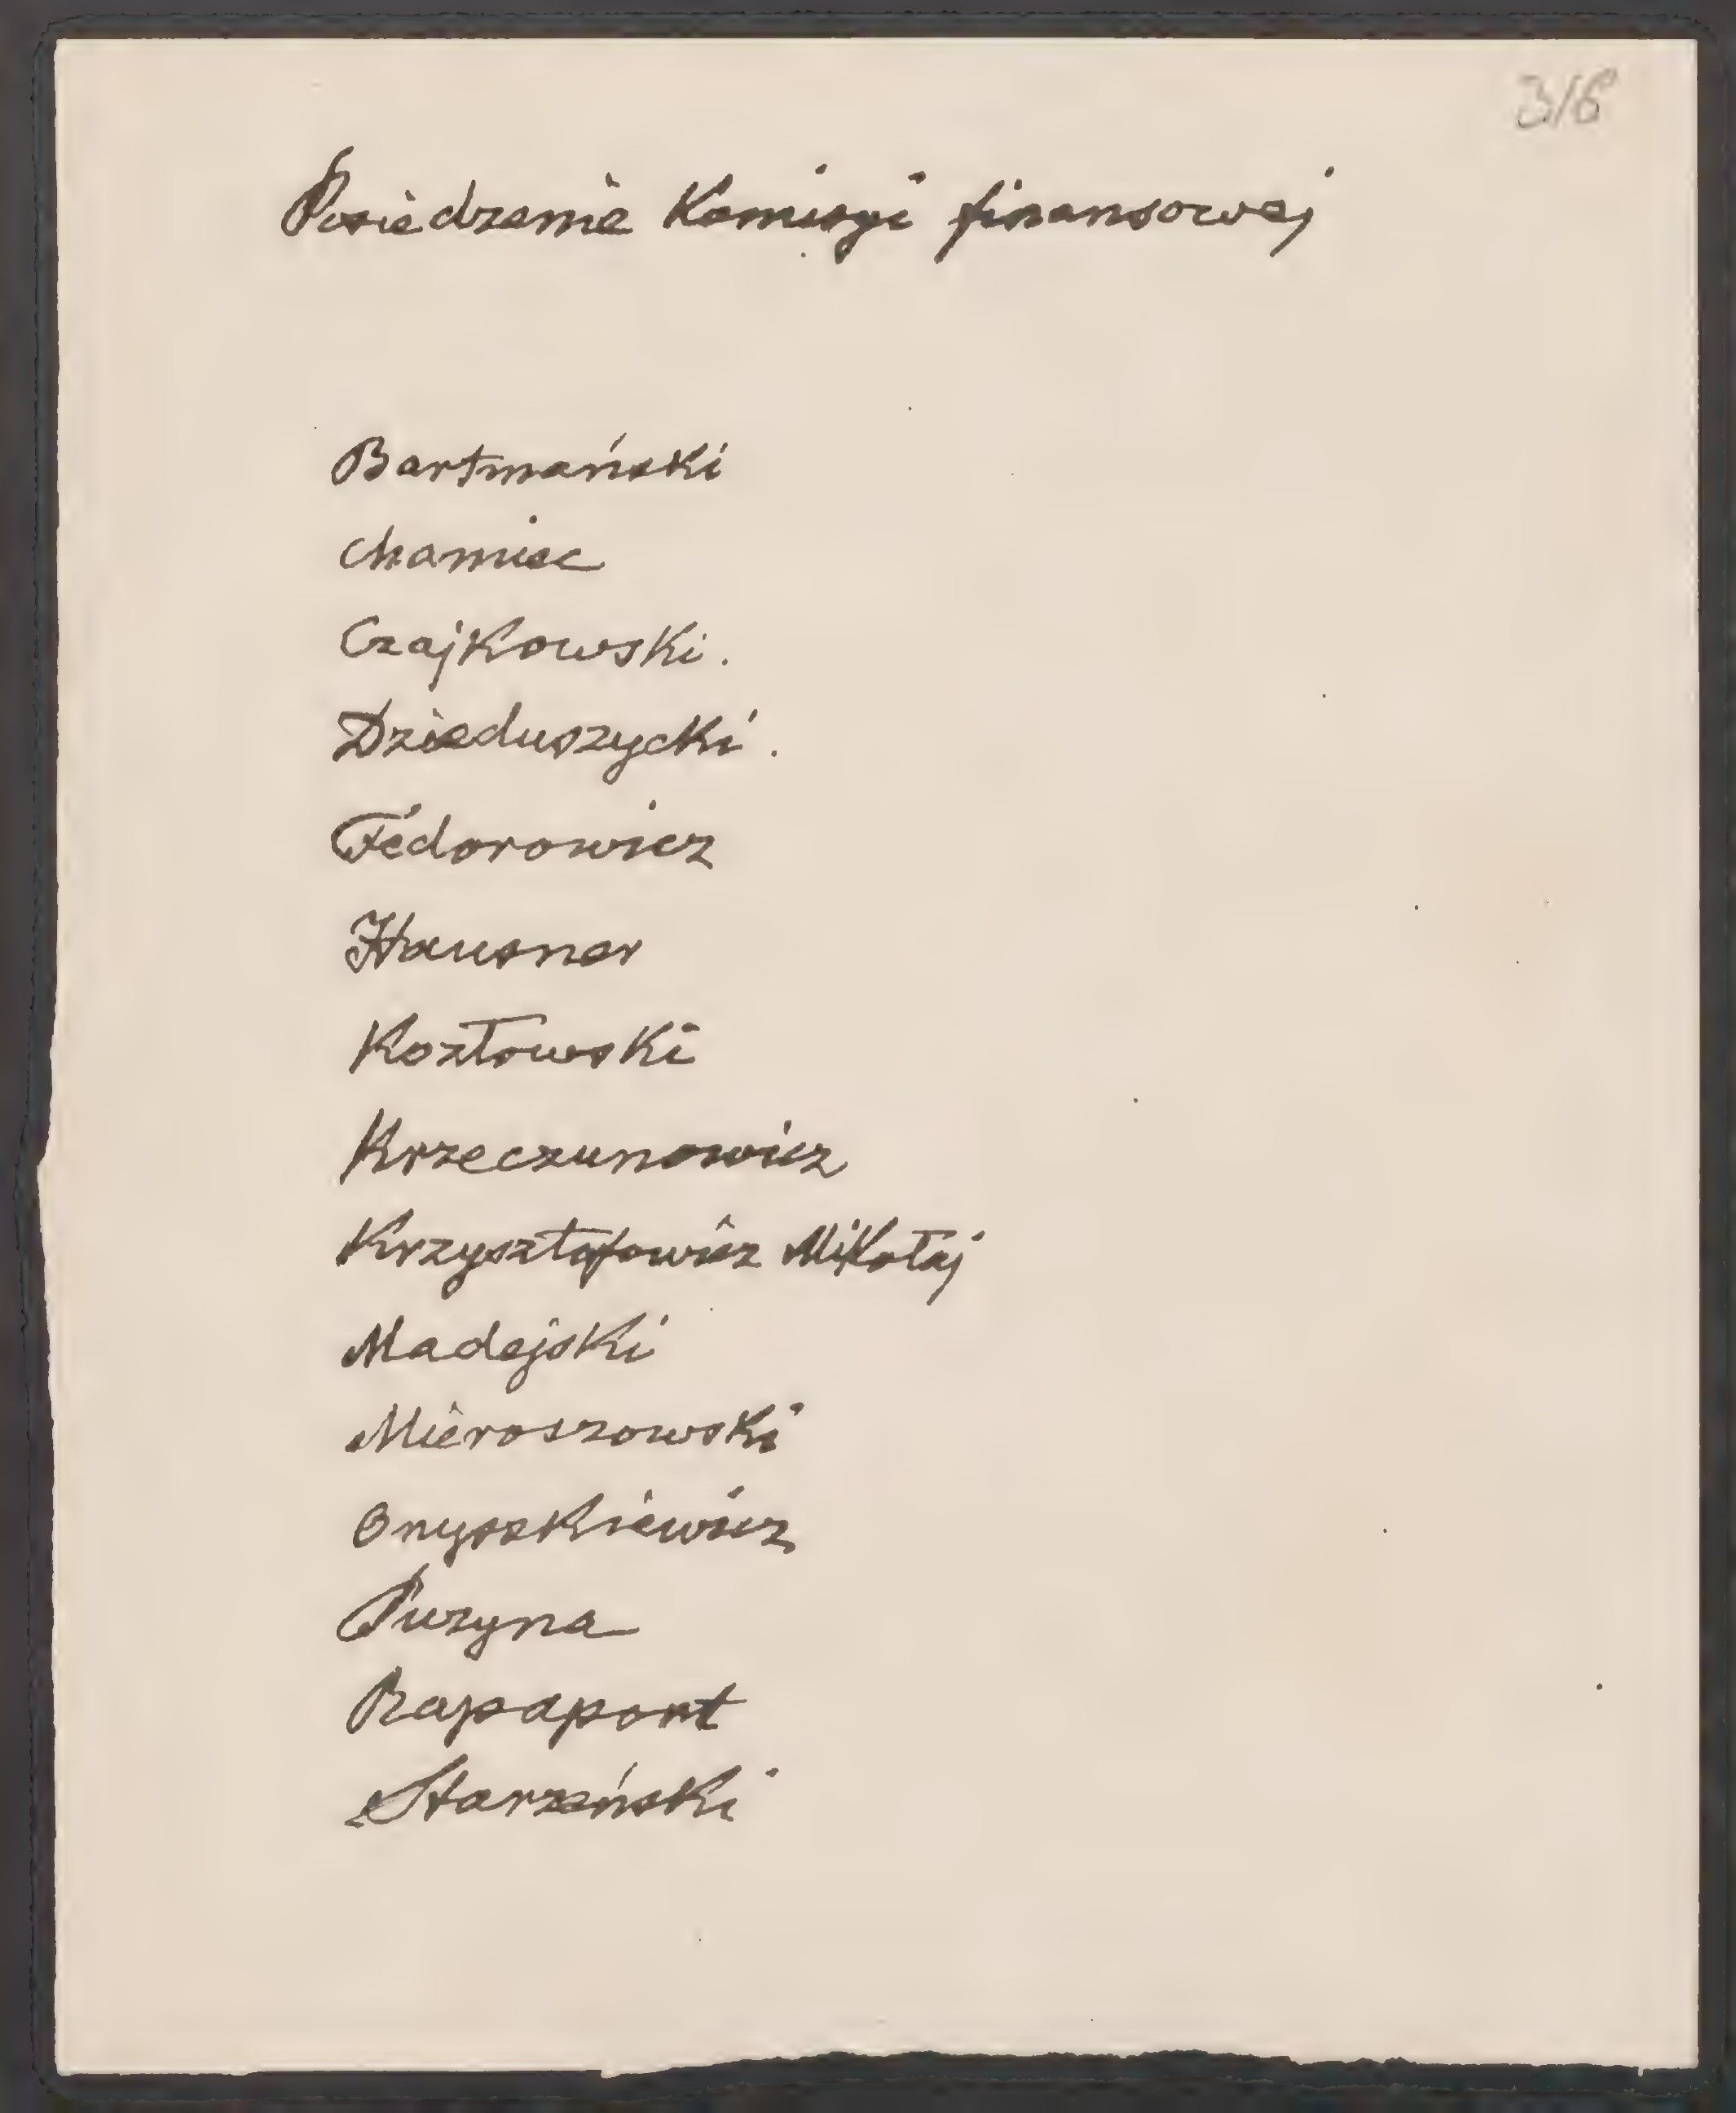 316
Posiedzenie Komisyi finansowej
Bartmański
Chamiec
Czajkowski.
Dzieduszycki.
Fedorowicz
Hausner
Kozłowski
Krzeczunowicz
Krzysztofowicz Mikołaj
Madejski
Mieroszowski
Onyszkiewicz
Puzyna
Rapaport
Starzeński